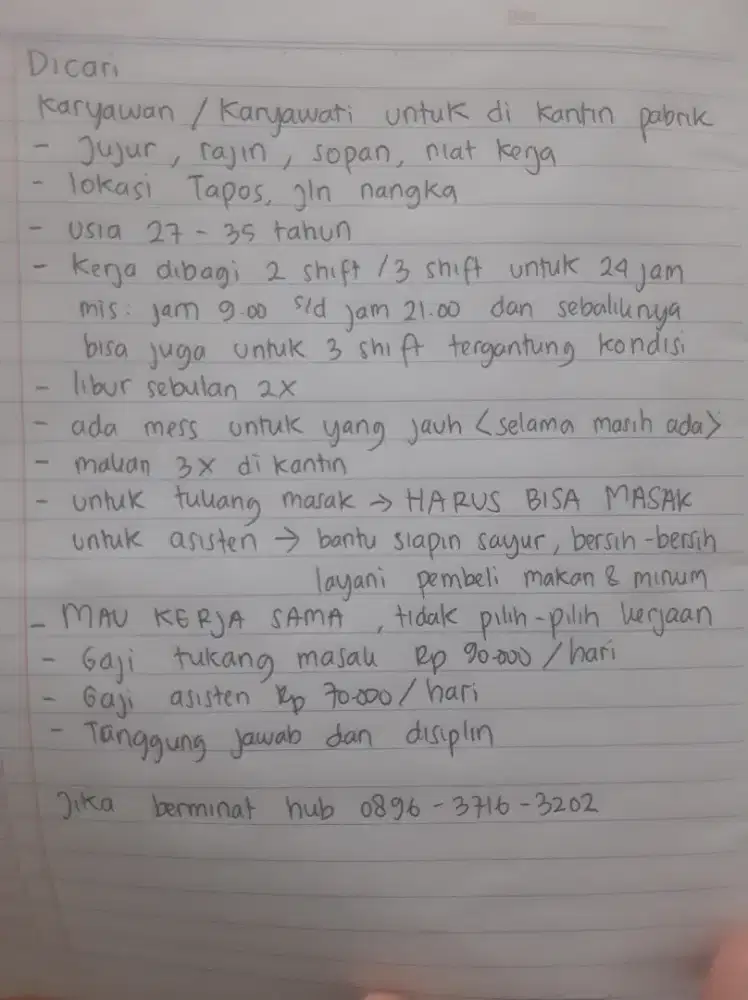 Dicari
Karyawan / Karyawati untuk di kantin pabrik
- Jujur, rajin, sopan, niat kerja
- lokasi Tapos, jln nangka
- usia 27 - 35 tahun
- Kerja dibagi 2 shift / 3 shift untuk 24 jam
mis: jam 9.00 s/d jam 21.00 dan sebaliknya
bisa juga untuk 3 shift tergantung kondisi
- libur sebulan 2x
- ada mess untuk yang jauh <selama masih ada>
- makan 3x di kantin
- untuk tukang masak → HARUS BISA MASAK
untuk asisten → bantu siapin sayur, bersih-bersih
layani pembeli makan & minum
- MAU KERJA SAMA, tidak pilih-pilih kerjaan
- Gaji tukang masak Rp 90.000 / hari
- Gaji asisten Rp 70.000 / hari
- Tanggung jawab dan disiplin
Jika berminat hub 0896 - 3716 - 3202